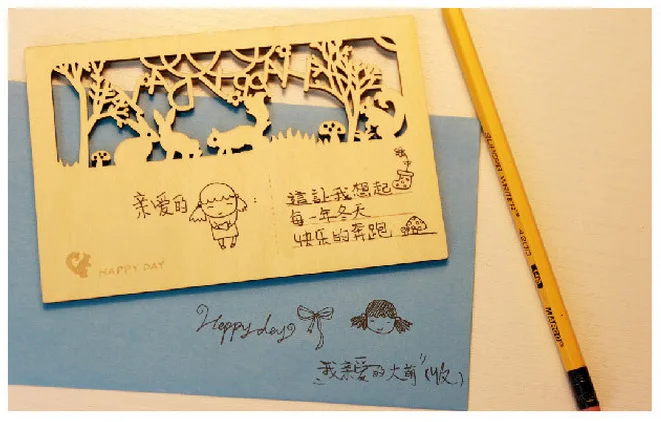 亲爱的
:
這让我想起
每一年冬天
快乐的奔跑
HAPPY DAY
Happy day
"我亲爱的大萌"(收)